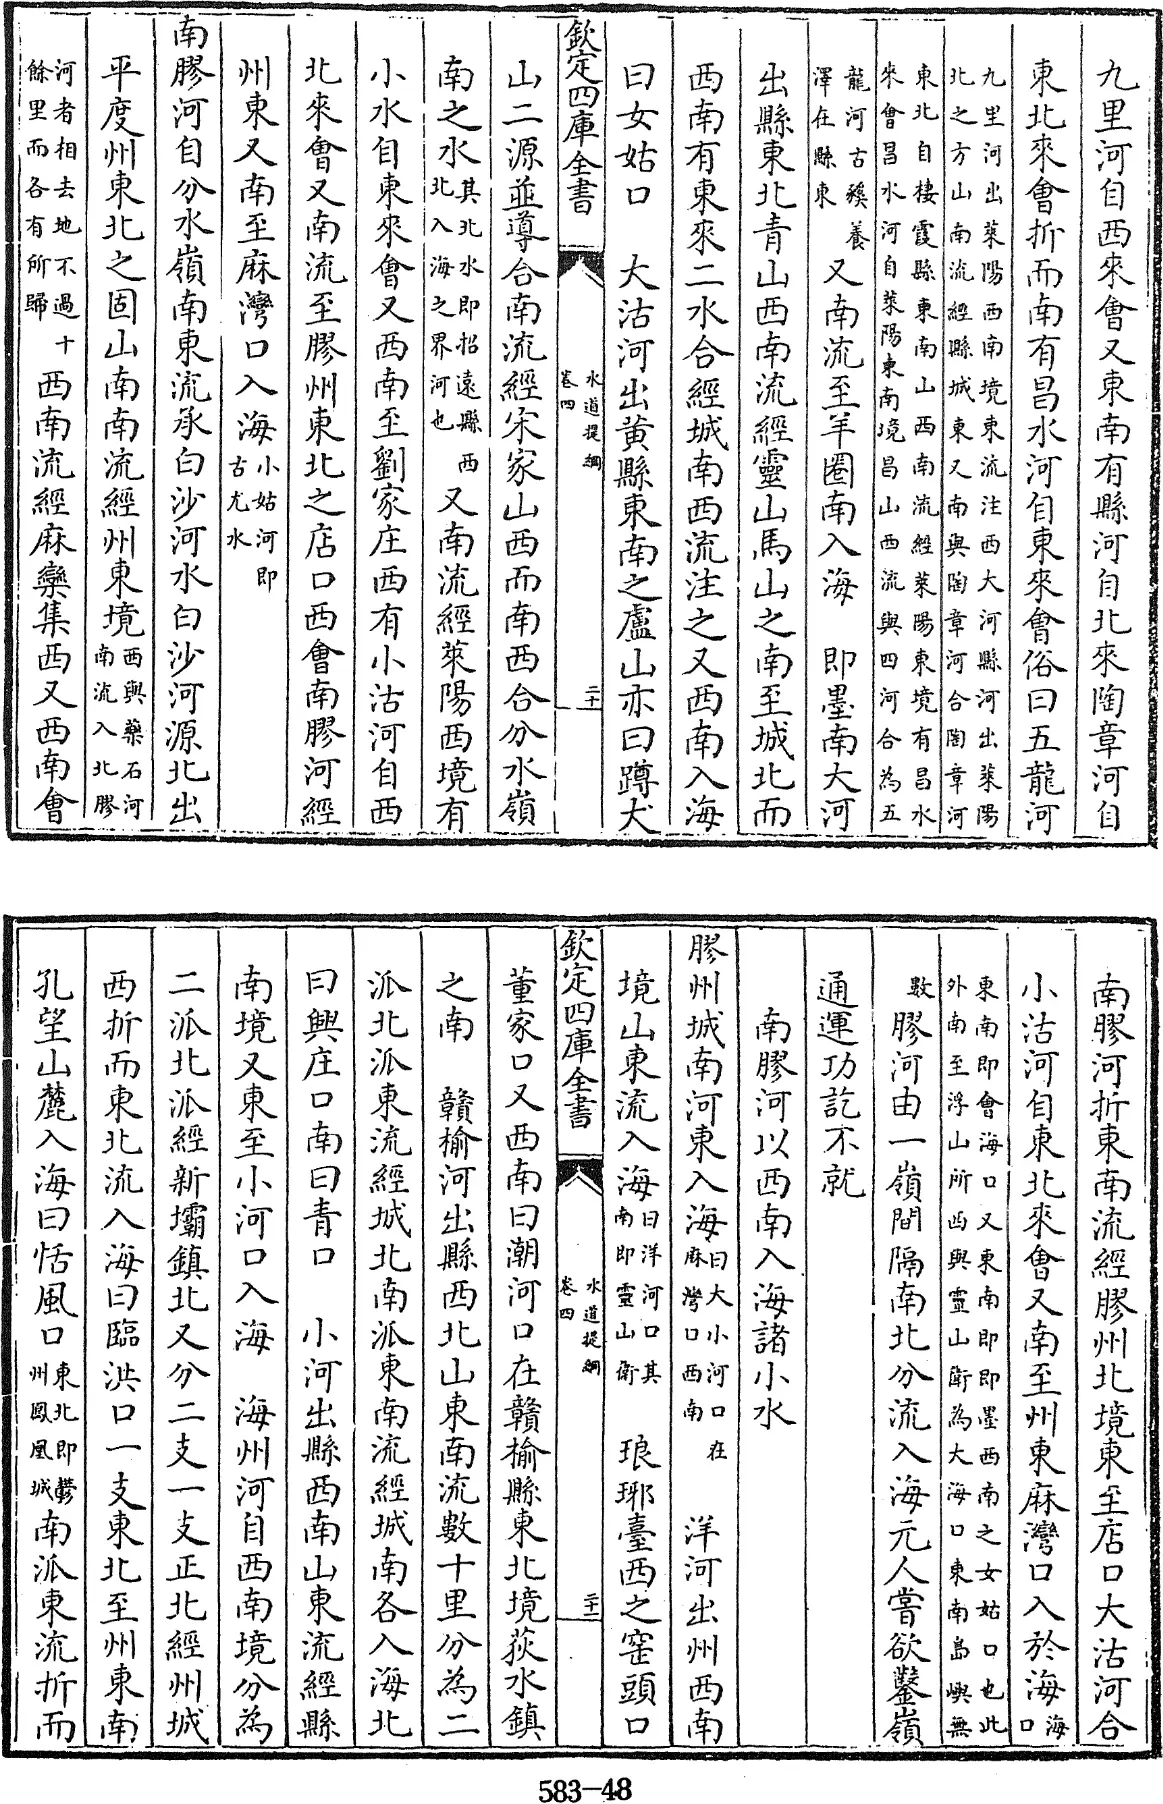 九里河自西來會又東南有縣河自北來陶章河自
東北來會折而南有昌水河自東來會俗曰五龍河
九里河出萊陽西南境東流注西大河縣河出萊陽
北之方山南流經縣城東又南與陶章河合陶章河
東北自棲霞縣東南山西南流經萊陽東境有昌水
來會昌水河自萊陽東南境昌山西流與四河合為五
龍河古豯養澤在縣東又南流至羊圈南入海 即墨南大河
出縣東北青山西南流經靈山馬山之南至城北而
西南有東來二水合經城南西流注之又西南入海
曰女姑口 大沽河出黃縣東南之盧山亦曰蹲犬
欽定四庫全書 水道提綱 卷四 二十
山二源並導合南流經宋家山西而南西合分水嶺
南之水其北水即招遠縣西北入海之界河也又南流經萊陽西境有
小水自東來會又西南至劉家庄西有小沽河自西
北來會又南流至膠州東北之店口西會南膠河經
州東又南至麻灣口入海小姑河即古尤水
南膠河自分水嶺南東流承白沙河水白沙河源北出
平度州東北之固山南南流經州東境西與藥石河南流入北膠
河者相去地不過十餘里而各有所歸西南流經麻欒集西又西南會
南膠河折東南流經膠州北境東至店口大沽河合
小沽河自東北來會又南至州東麻灣口入於海海口
東南即會海口又東南即即墨西南之女姑口也此
外南至浮山所西與靈山衛為大海口東南島嶼無
數膠河由一嶺間隔南北分流入海元人嘗欲鑿嶺
通運功訖不就
南膠河以西南入海諸小水
膠州城南河東入海曰大小河口在麻灣口西南 洋河出州西南
境山東流入海曰洋河口其南即靈山衛 琅琊臺西之窑頭口
欽定四庫全書 水道提綱 卷四 二十一
董家口又西南曰潮河口在贛榆縣東北境荻水鎮
之南 贛榆河出縣西北山東南流數十里分為二
派北派東流經城北南派東南流經城南各入海北
曰興庄口南曰青口 小河出縣西南山東流經縣
南境又東至小河口入海 海州河自西南境分為
二派北派經新壩鎮北又分二支一支正北經州城
西折而東北流入海曰臨洪口一支東北至州東南
孔望山麓入海曰恬風口東北即鬱州鳳凰城南派東流折而
583-48